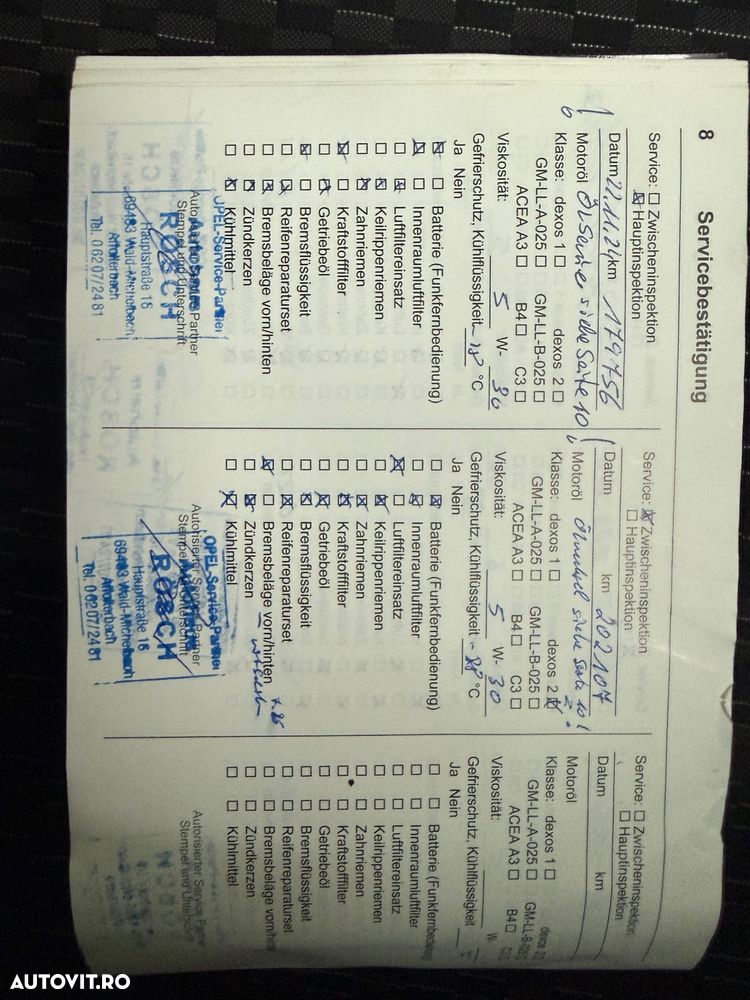 8 Servicebestätigung
Service: ☐ Zwischeninspektion
☒ Hauptinspektion
Datum 22.11.21 km 179756
Motoröl Ölsorte siehe Seite 10
Klasse: dexos 1 ☐ dexos 2 ☐
GM-LL-A-025 ☐ GM-LL-B-025 ☐
ACEA A3 ☐ B4 ☐ C3 ☐
Viskosität: 5 W- 30
Gefrierschutz, Kühlflüssigkeit -28 °C
Ja Nein
Batterie (Funkfernbedienung)
Innenraumluftfilter
Luftfiltereinsatz
Keilrippenriemen
Zahnriemen
Kraftstofffilter
Getriebeöl
Bremsflüssigkeit
Reifenreparaturset
Bremsbeläge vorn/hinten
Zündkerzen
Kühlmittel
OPEL-Service-Partner
Autorisierter Service Partner
Stempel und Unterschrift
RÖSCH
Hauptstraße 16
69483 Wald-Michelbach
Aftolderbach
Tel. 06207/2481
Service: ☒ Zwischeninspektion
☐ Hauptinspektion
Datum km 202107
Motoröl siehe Seite 10!
Klasse: dexos 1 ☐ dexos 2 ☒
GM-LL-A-025 ☐ GM-LL-B-025 ☐
ACEA A3 ☐ B4 ☐ C3 ☐
Viskosität: 5 W- 30
Gefrierschutz, Kühlflüssigkeit -28 °C
Ja Nein
Batterie (Funkfernbedienung)
Innenraumluftfilter
Luftfiltereinsatz
Keilrippenriemen
Zahnriemen
Kraftstofffilter
Getriebeöl
Bremsflüssigkeit
Reifenreparaturset
Bremsbeläge vorn/hinten
Zündkerzen
Kühlmittel
OPEL-Service-Partner
Autorisierter Service Partner
Stempel und Unterschrift
RÖSCH
Hauptstraße 16
69483 Wald-Michelbach
Aftolderbach
Tel. 06207/2481
Service: ☐ Zwischeninspektion
☐ Hauptinspektion
Datum km
Motoröl
Klasse: dexos 1 ☐ dexos 2
GM-LL-A-025 ☐ GM-LL-B-025
ACEA A3 ☐ B4 ☐
Viskosität: W-
Gefrierschutz, Kühlflüssigkeit
Ja Nein
Batterie (Funkfernbedienung
Innenraumluftfilter
Luftfiltereinsatz
Keilrippenriemen
Zahnriemen
Kraftstofffilter
Getriebeöl
Bremsflüssigkeit
Reifenreparaturset
Bremsbeläge vorn/hinten
Zündkerzen
Kühlmittel
Autorisierter Service Partner
Stempel und Unterschrift
AUTOVIT.RO